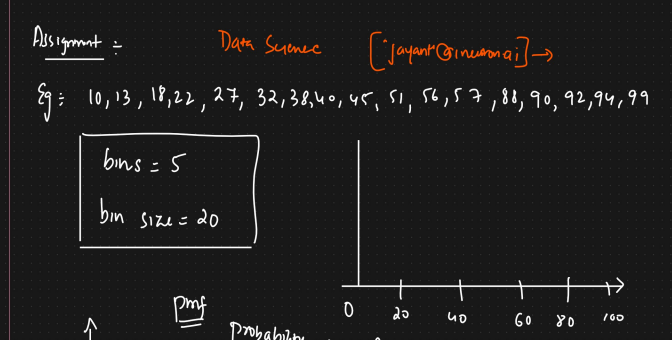 Assignment :-
Data Science [jayant@ineuron.ai] →
Eg:- 10, 13, 18, 22, 27, 32, 38, 40, 45, 51, 56, 57, 88, 90, 92, 94, 99
bins = 5
bin size = 20
0 20 40 60 80 100
pmf
Probability